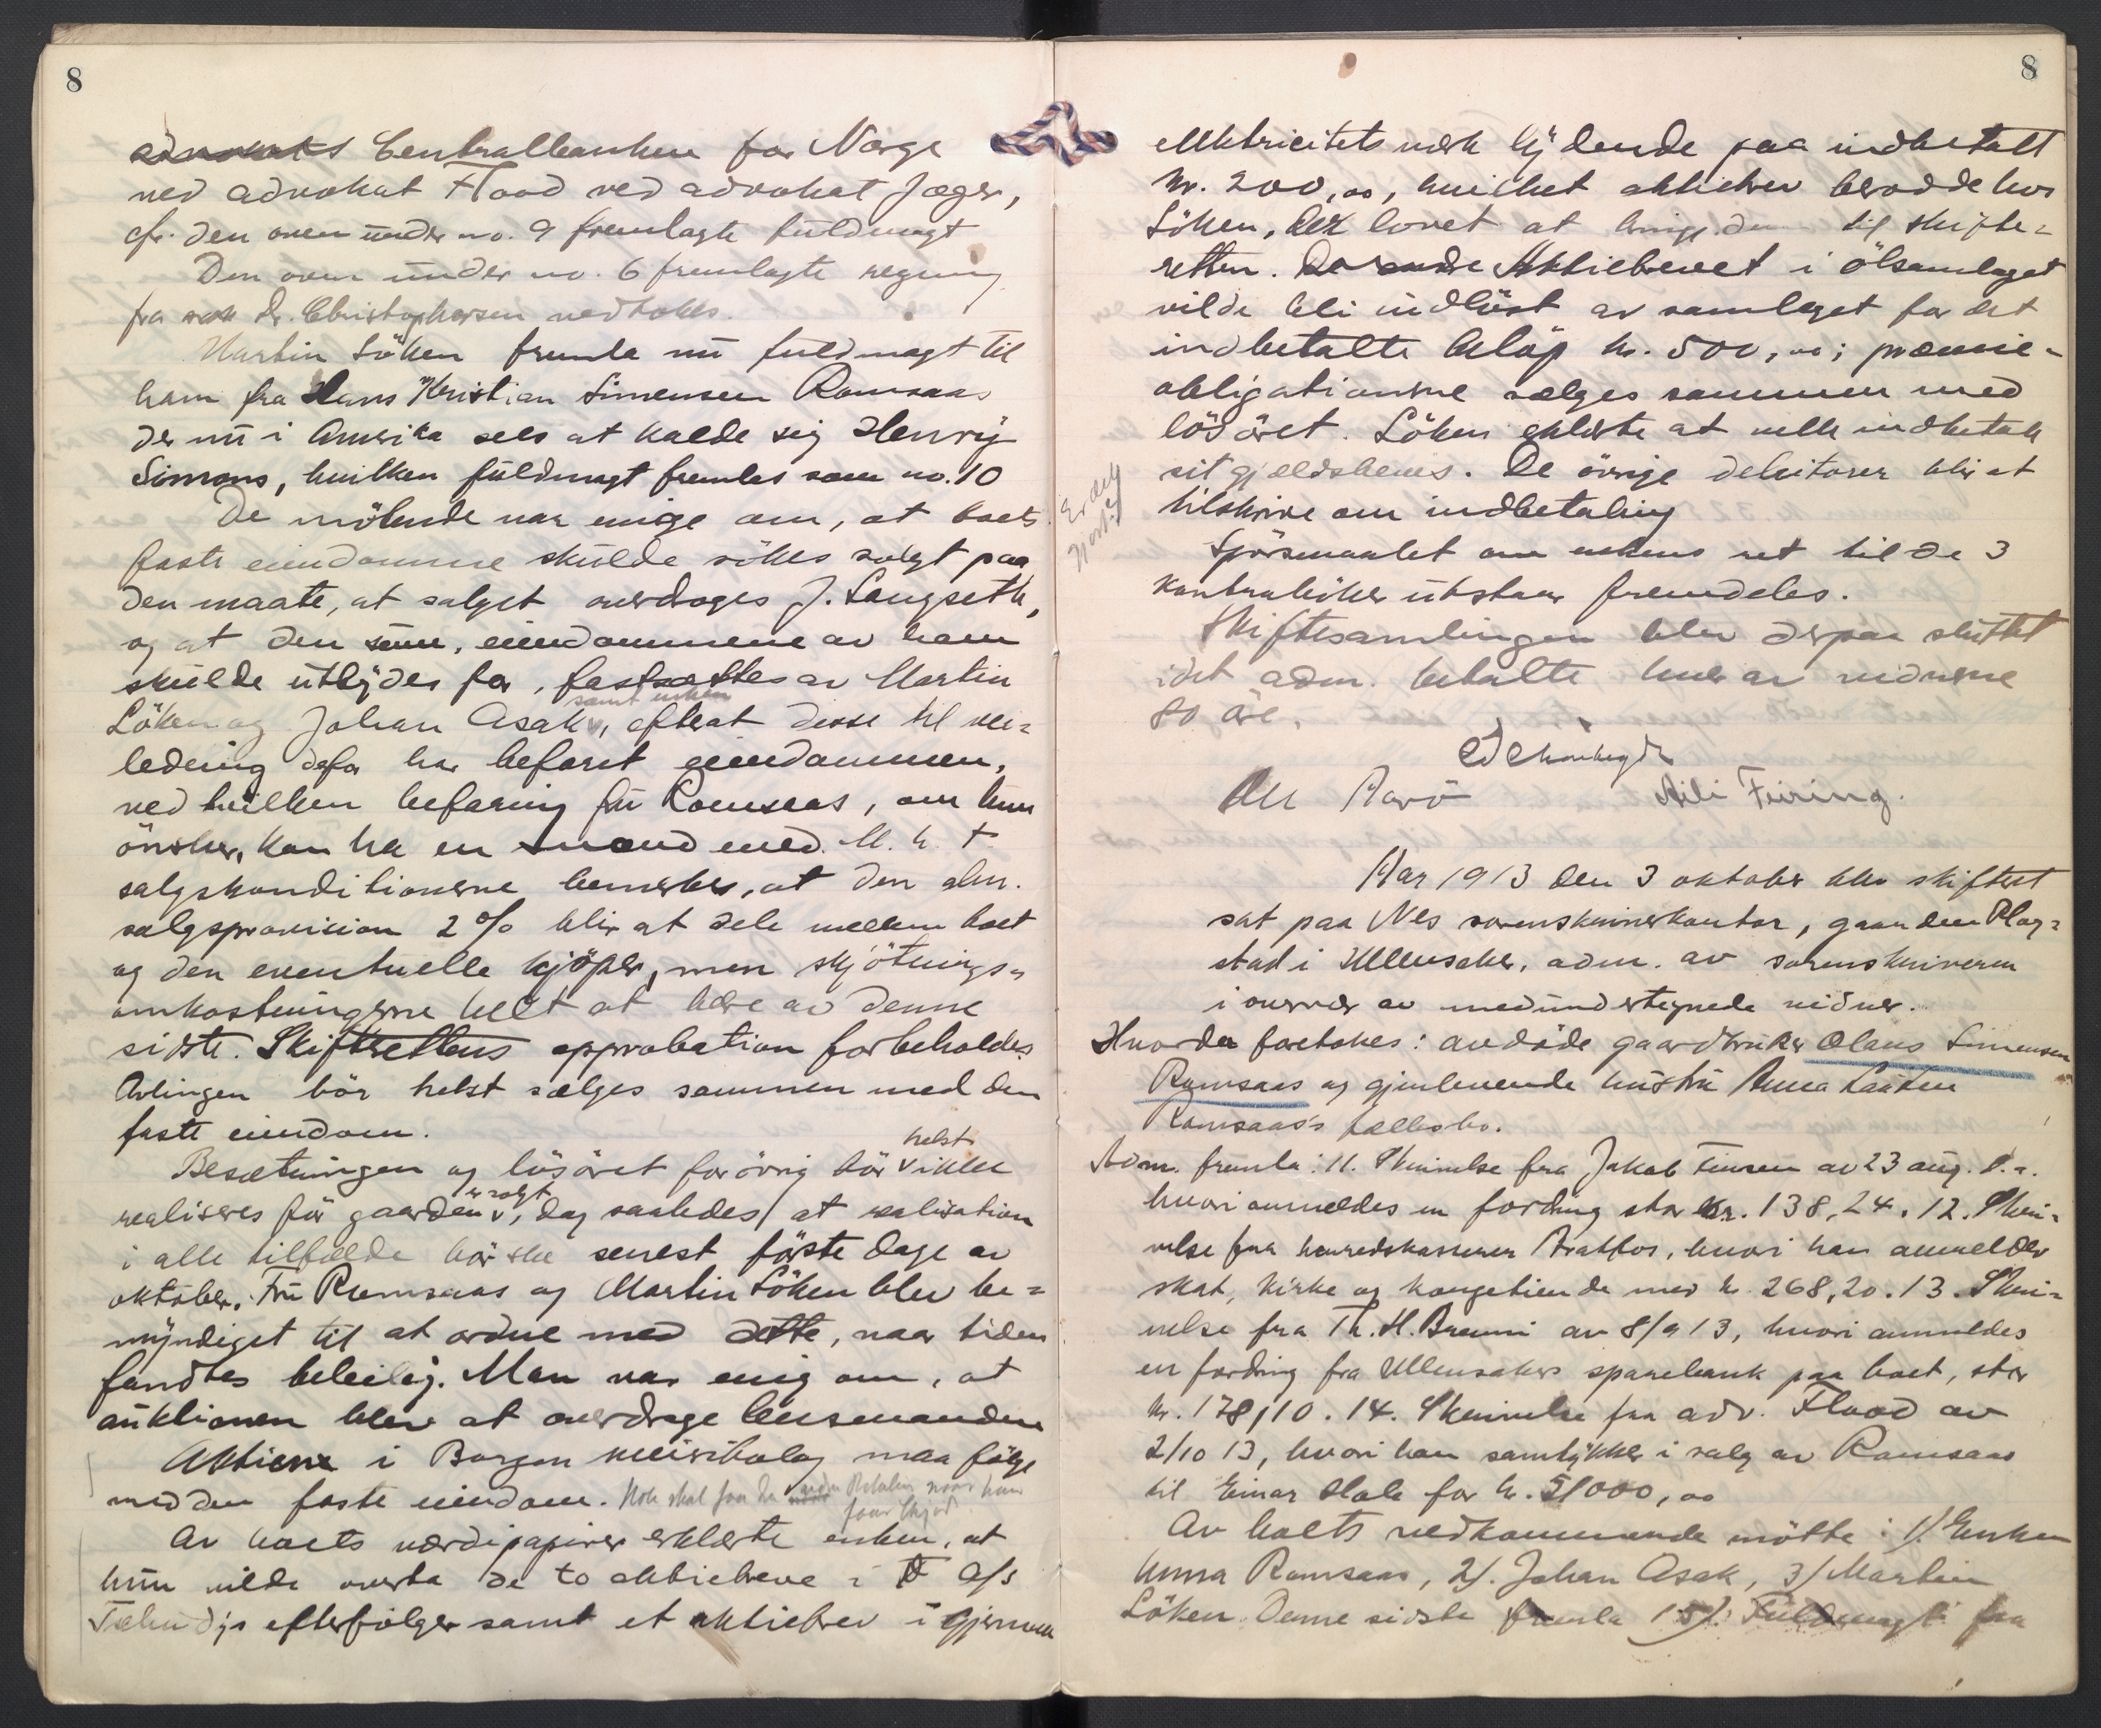 8
advokats Centralbanken for Norge
ved advokat Flood ved advokat Jæger,
cfr. den oven under no. 9 fremlagte fuldmagt
Den oven under no. 6 fremlagte regning
fra Dr. Christophersen vedtokes.
Martin Löken fremla nu fuldmagt til
ham fra Hans Kristian Simensen Ramsaas
der nu i Amerika sees at kalde sig Henry
Simons, hvilken fuldmagt fremlas som no. 10
De mötende var enige om, at boets
faste eiendomme skulde sökes solgt paa
den maate, at salget overdroges J. Langseth,
og at den sum, eiendommene av ham
skulde utbydes for, fastsættes av Martin
samt enken
Löken og Johan Asak, efterat disse til vei=
ledning defor har befaret eiendommen,
ved hvilken befaring fru Ramsaas, om hun
önsker, kan ha en mand med. M. h. t.
salgskonditionerne bemerkes, at den alm.
salgsprovision 2 % blir at dele mellem boet
og den eventuelle kjöper, men skjötnings=
omkostningerne helt at bære av denne
sidste. Skifterettens approbation forbeholdes.
Avlingen bör helst sælges sammen med den
faste eiendom.
helst
Besætningen og lösöret forövrig bör v ikke
er solgt
realiseres för gaarden v, dog saaledes, at realisation
i alle tilfælde bör ske senest förste dage av
oktober. Fru Ramsaas og Martin Löken blev be=
myndiget til at ordne med dette, naar tiden
fandtes beleilig. Man var enig om, at
auktionen blev at overdrage lensmanden
Aktierne i Borgen meieribolag maa fölge
med den faste eiendom. Hole skal faa de uden Betaling naar han
faar Skjöd
Av boets værdipapirer erklærte enken, at
hun vilde overta de to aktiebreve i A/S
efterfölger samt et aktiebrev i Gjermaa
8
elektricitetsverk lydende paa indbetalt
kr. 200,00, hvilket aktiebrev berodde hos
Löken, der lovet at bringe den til skifte=
retten. Aktiebrevet i ölsamlaget
vilde bli indlöst av samlaget for det
indbetalte belöp kr. 500,00; præmie=
obligationerne sælges sammen med
lösöret. Löken erklærte at ville indbetale
sit gjeldsbevis. De övrige debitorer blir at
tilskrive om indbetaling
Er det
Spörsmaalet om enkens ret til de 3
kontraböker utstaar fremdeles.
Skiftesamlingen blev derpaa sluttet
idet adm. betalte hver av vidnerne
80 öre.
Ole Aarö Aili Feiring.
Aar 1913 den 3 oktober blev skifteret
sat paa Nes sorenskriverkontor, gaarden Plog=
stad i Ullensaker, adm. av sorenskriveren
i overvær av medundertegnede vidner.
Hvorda foretokes: avdöde gaardbruker Olaus Simensen
Ramsaas og gjenlevende hustru Anna
Ramsaas's fællesbo.
Adm. fremla: 11. Skrivelse fra Jakob Finsen av 23 aug. d.a.
hvori anmeldes en fordring stor kr. 138,24. 12. Skri=
velse fra herredskasserer Brattfos, hvori han anmelder
skat, kirke og kongetiende med kr. 268,20. 13. Skri=
velse fra Th. H. Brenni av 8/9 13, hvori anmeldes
en fordring fra Ullensakers sparebank paa boet, stor
kr. 178,10. 14. Skrivelse fra adv. Flood av
2/10 13, hvori han samtykker i salg av Ramsaas
til Einar Hole for kr. 51000,00
Av boets vedkommende mötte: 1/. Enken
Anna Ramsaas, 2/. Johan Asak, 3/ Martin
Löken. Denne sidste fremla 15/. Fuldmagt fra